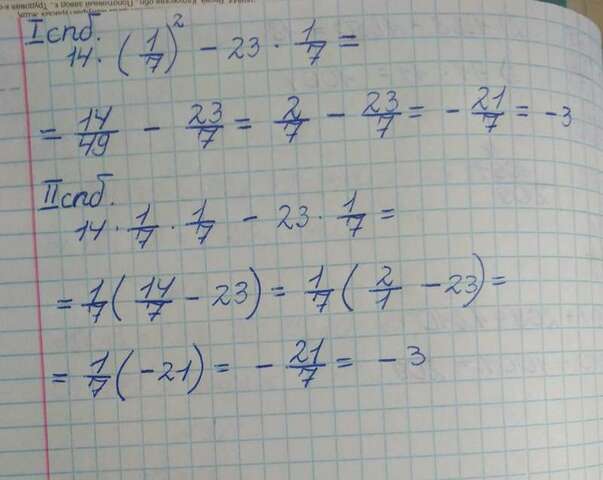 I спб.
14 · (1/7)² − 23 · 1/7 =
= 14/49 − 23/7 = 2/7 − 23/7 = − 21/7 = −3
II спб.
14 · 1/7 · 1/7 − 23 · 1/7 =
= 1/7 (14/7 − 23) = 1/7 (2/1 − 23) =
= 1/7 (−21) = − 21/7 = −3